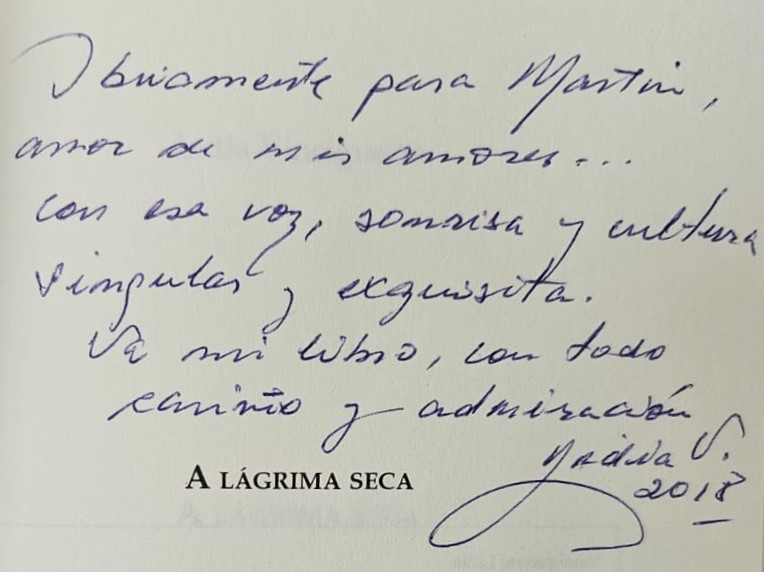 Obviamente para Martin,
amor de mis amores...
con esa voz, sonrisa y cultura
singular y exquisita.
Va mi libro, con todo
cariño y admiración
V.
A LÁGRIMA SECA
2018